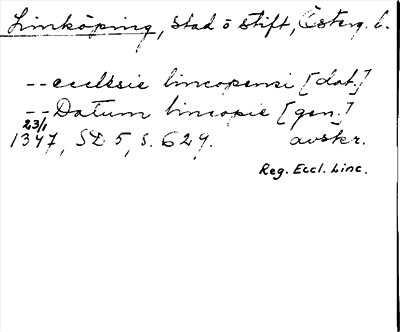 Linköping, stad o stift, Österg. l.
-- ecclesie lincopensi [dat.]
-- Datum lincopie [gen.]
23/1
1347, SD 5, s. 629. avskr.
Reg. Eccl. Linc.